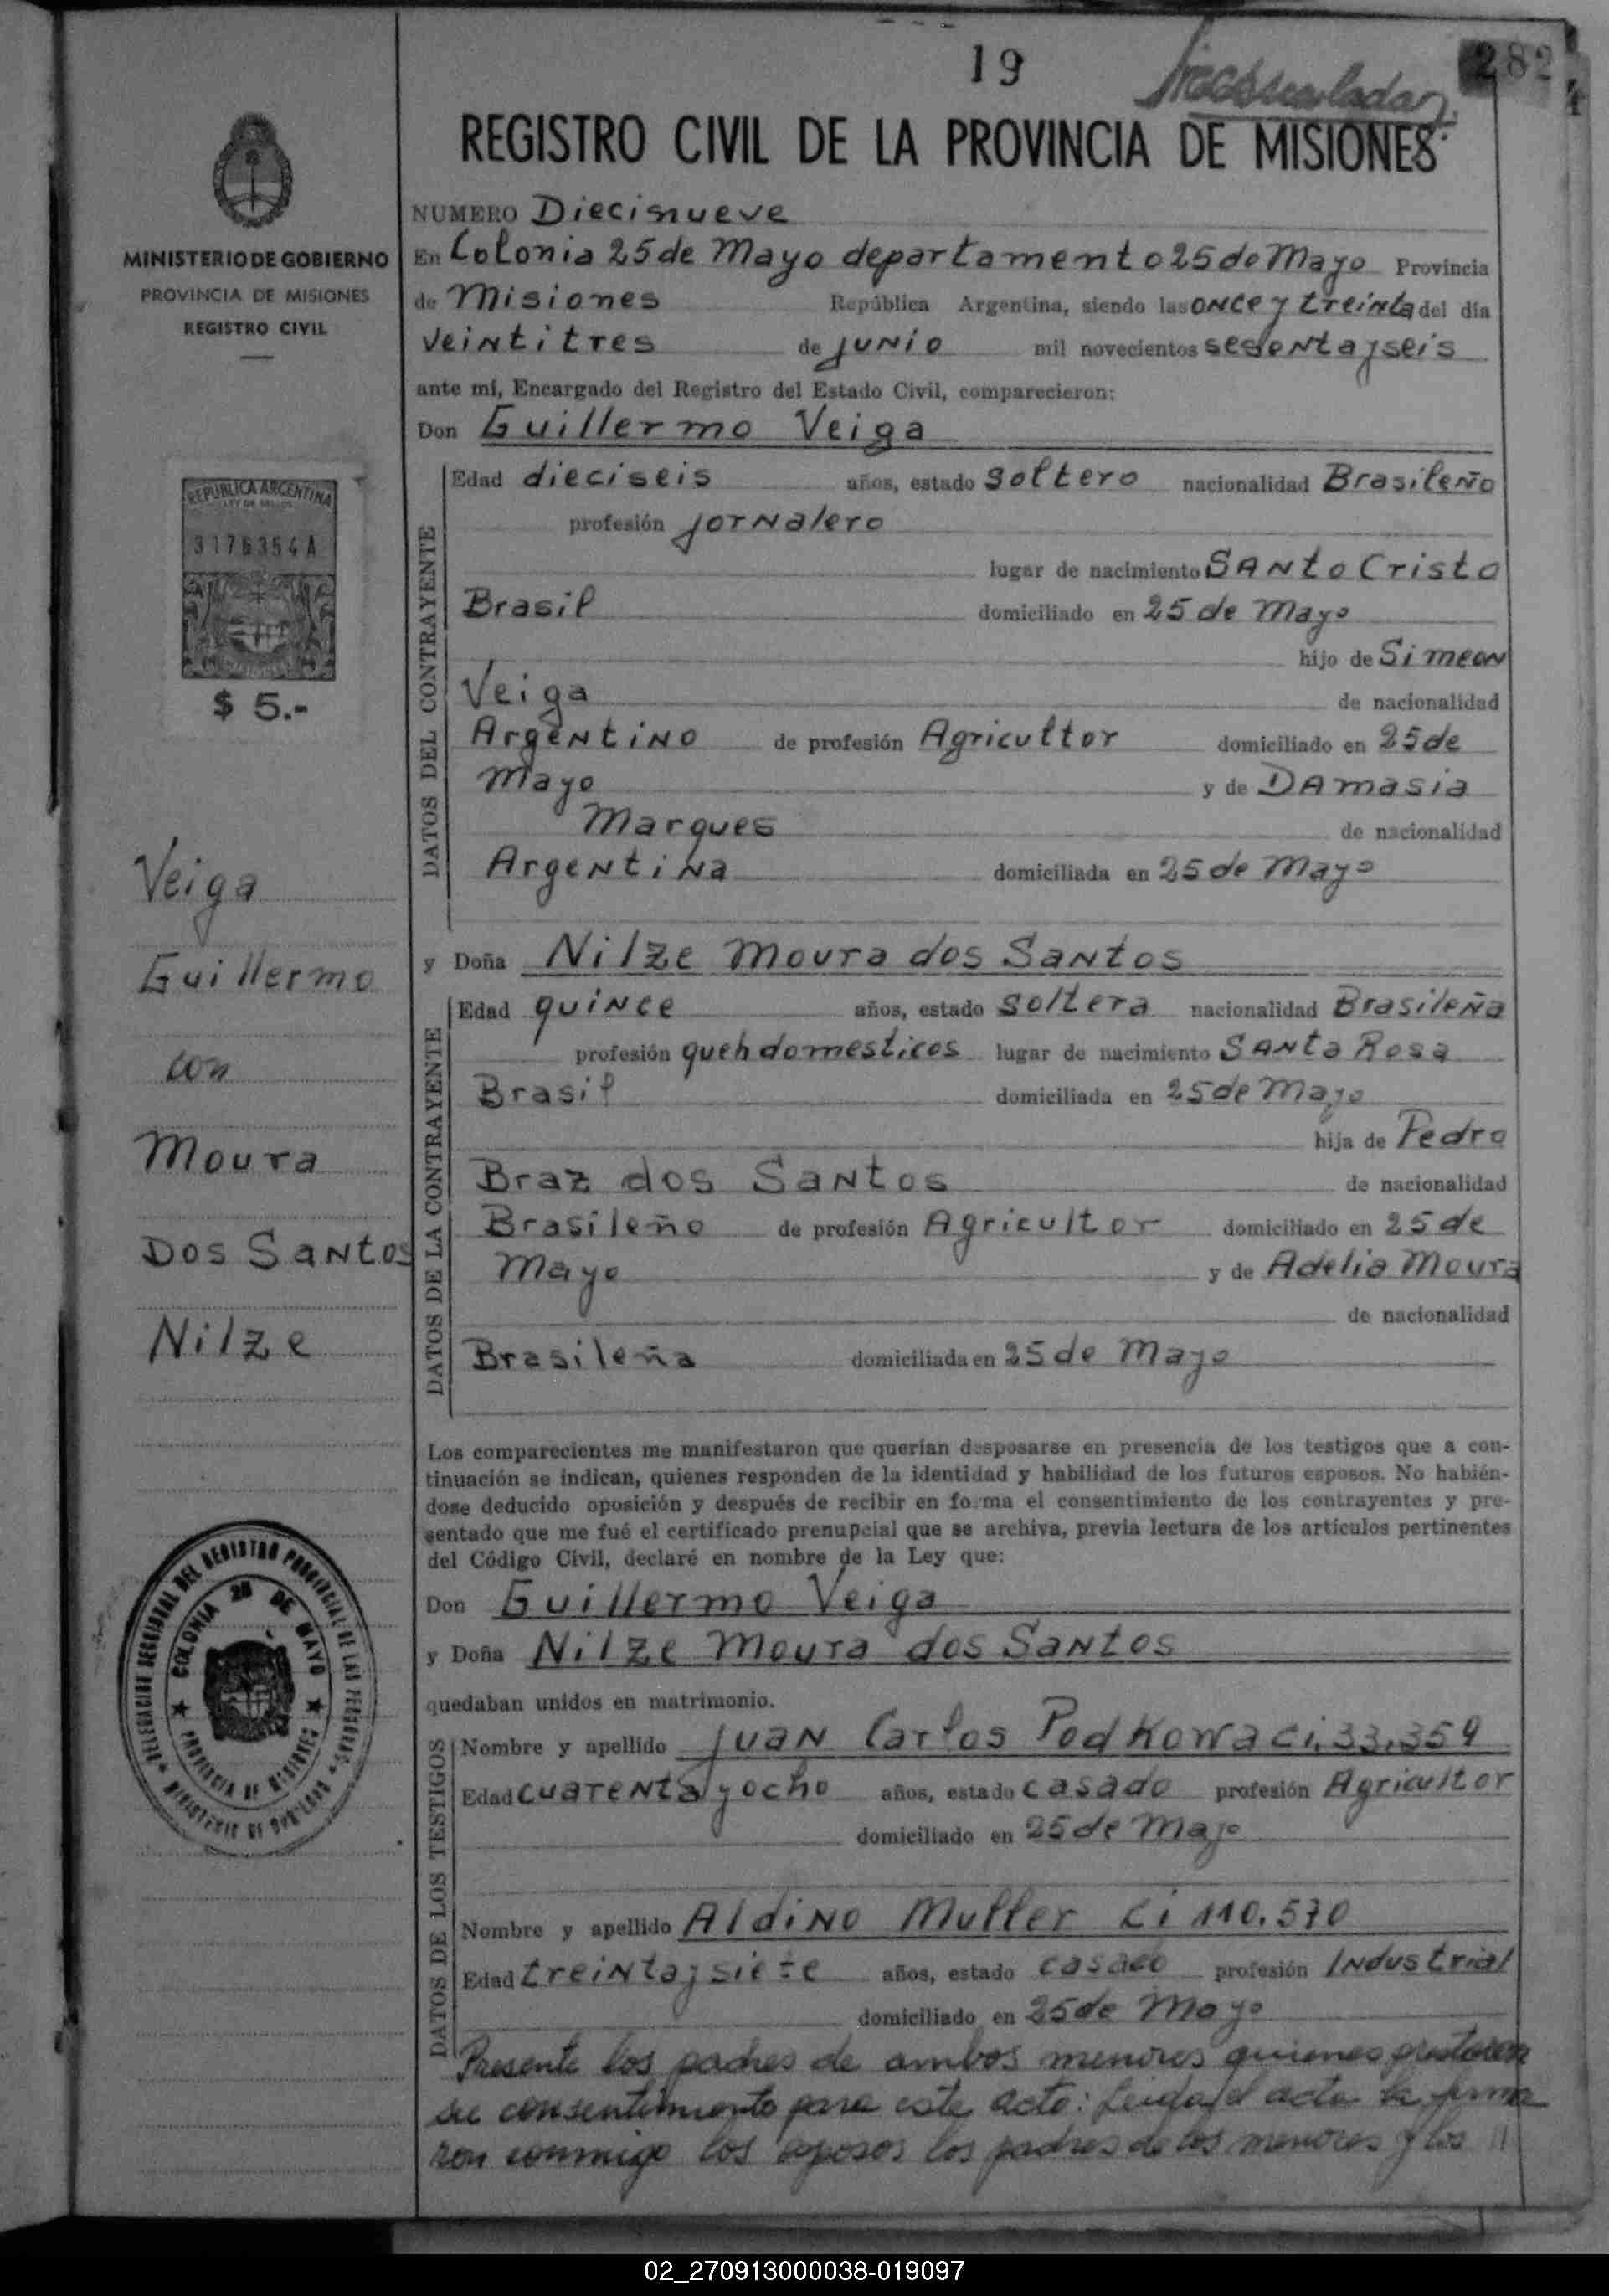 19
282
REGISTRO CIVIL DE LA PROVINCIA DE MISIONES
MINISTERIO DE GOBIERNO
PROVINCIA DE MISIONES
REGISTRO CIVIL
REPUBLICA ARGENTINA
3176354 A
$ 5.-
Veiga
Guillermo
con
Moura
Dos Santos
Nilze
COLONIA 25 DE MAYO
PROVINCIA DE MISIONES
NUMERO Diecisnueve
En Colonia 25 de Mayo departamento 25 de Mayo Provincia
de Misiones República Argentina, siendo las once y treinta del día
veintitres de junio mil novecientos sesenta y seis
ante mí, Encargado del Registro del Estado Civil, comparecieron:
Don Guillermo Veiga
DATOS DEL CONTRAYENTE
Edad dieciseis años, estado soltero nacionalidad Brasileño
profesión jornalero
lugar de nacimiento Santo Cristo
Brasil domiciliado en 25 de Mayo
hijo de Simeon
Veiga de nacionalidad
Argentino de profesión Agricultor domiciliado en 25 de
Mayo y de Damasia
Marques de nacionalidad
Argentina domiciliada en 25 de Mayo
y Doña Nilze Moura dos Santos
DATOS DE LA CONTRAYENTE
Edad quince años, estado soltera nacionalidad Brasileña
profesión queh domesticos lugar de nacimiento Santa Rosa
Brasil domiciliada en 25 de Mayo
hija de Pedro
Braz dos Santos de nacionalidad
Brasileño de profesión Agricultor domiciliado en 25 de
Mayo y de Adelia Moura
de nacionalidad
Brasileña domiciliada en 25 de Mayo
Los comparecientes me manifestaron que querían desposarse en presencia de los testigos que a con-
tinuación se indican, quienes responden de la identidad y habilidad de los futuros esposos. No habién-
dose deducido oposición y después de recibir en forma el consentimiento de los contrayentes y pre-
sentado que me fué el certificado prenupcial que se archiva, previa lectura de los artículos pertinentes
del Código Civil, declaré en nombre de la Ley que:
Don Guillermo Veiga
y Doña Nilze Moura dos Santos
quedaban unidos en matrimonio.
DATOS DE LOS TESTIGOS
Nombre y apellido Juan Carlos Podkowa ci. 33.359
Edad cuarenta y ocho años, estado casado profesión Agricultor
domiciliado en 25 de Mayo
Nombre y apellido Aldino Muller Ci 110.570
Edad treinta y siete años, estado casado profesión Industrial
domiciliado en 25 de Mayo
Presente los padres de ambos menores quienes prestaron
su consentimiento para este acto: Leida el acta la firma
ron conmigo los esposos los padres de los menores y los //
02_270913000038-019097